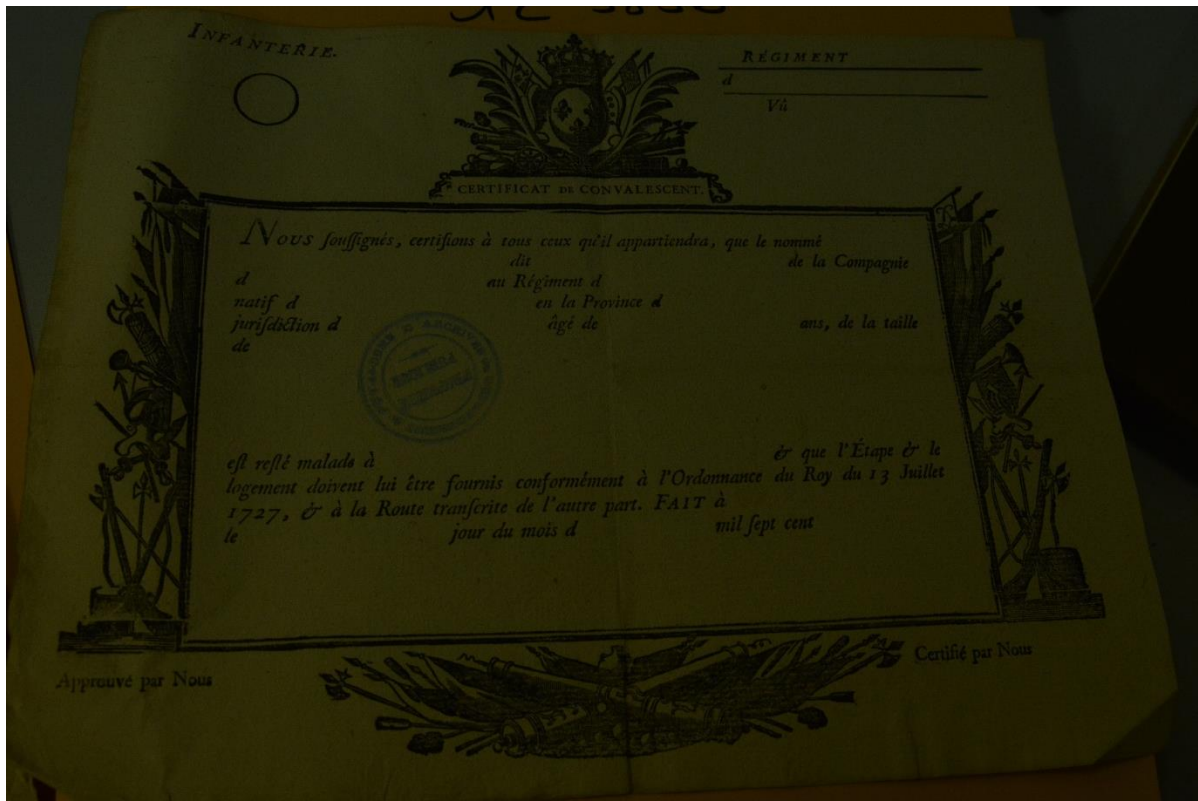 INFANTERIE.
RÉGIMENT
d
Vû
CERTIFICAT DE CONVALESCENT.
Nous ſouſſignés, certifions à tous ceux qu'il appartiendra, que le nommé
dit de la Compagnie
d au Régiment d
natif d en la Province d
juriſdiction d âgé de ans, de la taille
de
eſt reſté malade à & que l'Étape & le
logement doivent lui être fournis conformément à l'Ordonnance du Roy du 13 Juillet
1727, & à la Route tranſcrite de l'autre part. FAIT à
le jour du mois d mil ſept cent
Approuvé par Nous
Certifié par Nous